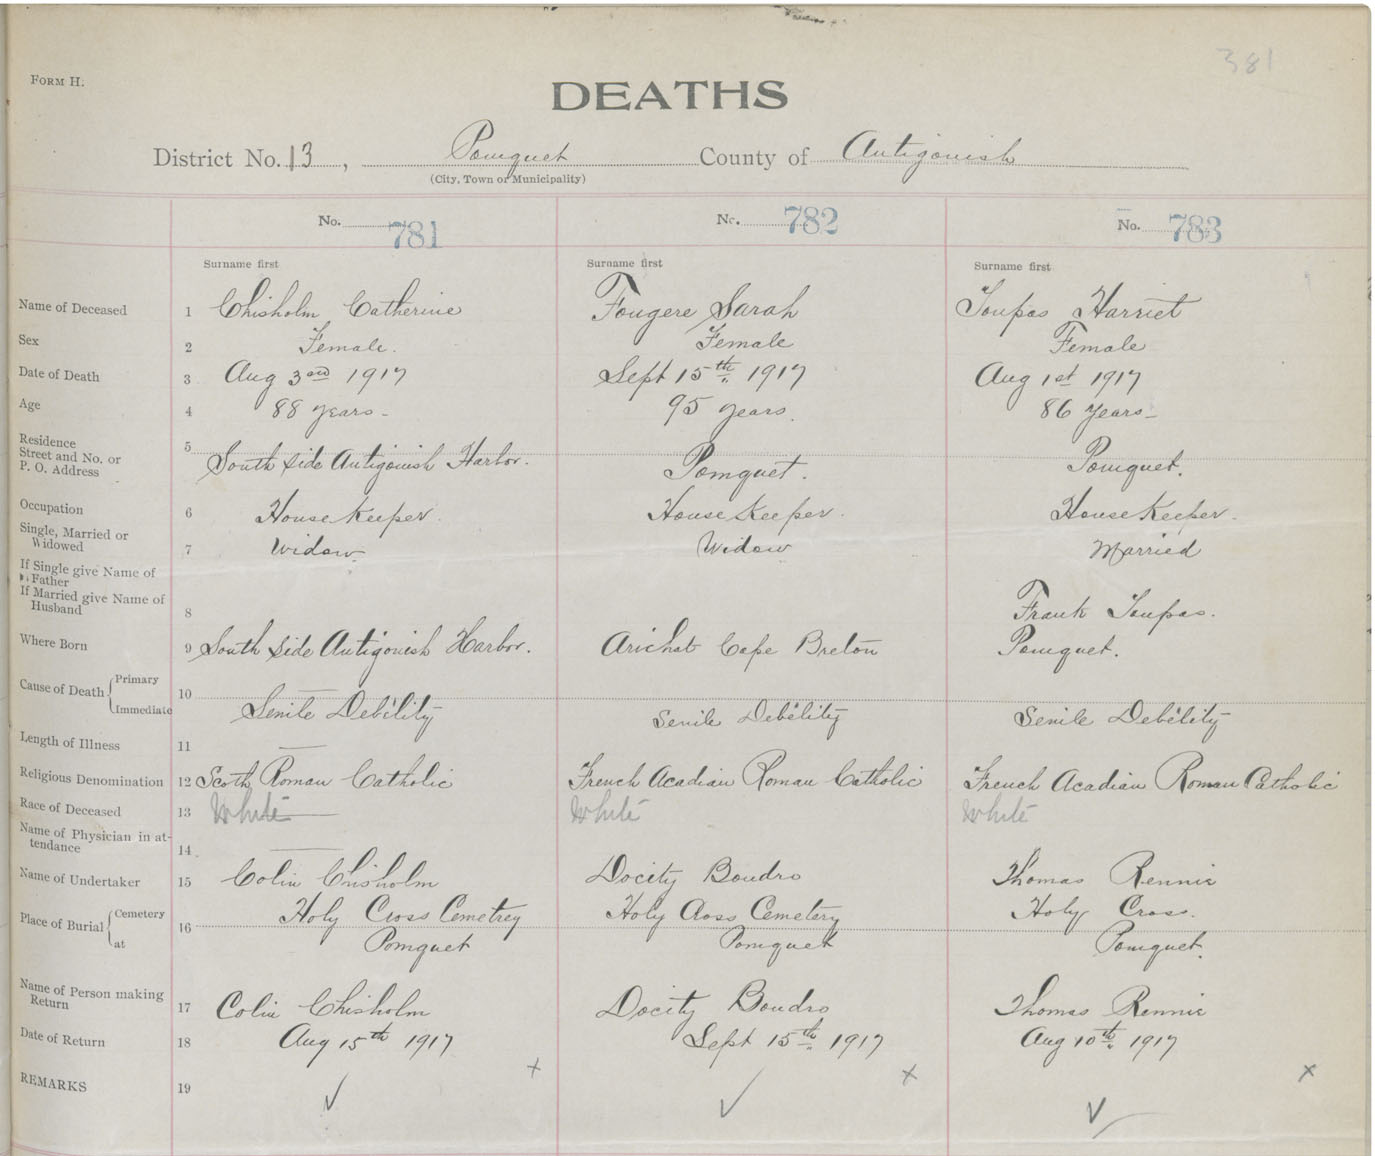 381
FORM H.
DEATHS
District No. 13, Pomquet County of Antigonish
(City, Town or Municipality)
No. 781 No. 782 No. 783
Surname first Surname first Surname first
Name of Deceased 1 Chisholm Catherine Fougere Sarah Harriet
Sex 2 Female. Female Female
Date of Death 3 Aug 3rd 1917 Sept 15th 1917 Aug 1st 1917
Age 4 88 years- 95 years. 86 years-
Residence
Street and No. or
P. O. Address 5 South side Antigonish Harbor. Pomquet. Pomquet.
Occupation 6 House Keeper. House Keeper. House Keeper.
Single, Married or
Widowed 7 Widow Widow Married
If Single give Name of
Father
If Married give Name of
Husband 8 Frank
Where Born 9 South side Antigonish Harbor. Arichat Cape Breton Pomquet.
Cause of Death { Primary
Immediate 10 Senile Debility Senile Debility Senile Debility
Length of Illness 11 —
Religious Denomination 12 Scoth Roman Catholic French Acadian Roman Catholic French Acadian Roman Catholic
Race of Deceased 13 White White White
Name of Physician in at-
tendance 14 —
Name of Undertaker 15 Colin Chisholm Docity Boudro Thomas Rennie
Place of Burial { Cemetery Holy Cross Cemetrey Holy Cross Cemetery Holy Cross.
at 16 Pomquet Pomquet Pomquet.
Name of Person making
Return 17 Colin Chisholm Docity Boudro Thomas Rennie
Date of Return 18 Aug 15th 1917 Sept 15th 1917 Aug 10th 1917
REMARKS 19